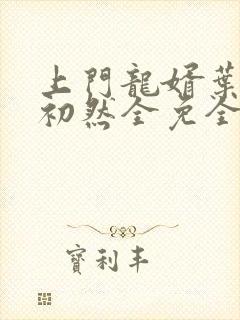 上門龍婿葉
初然全免全
寶利丰